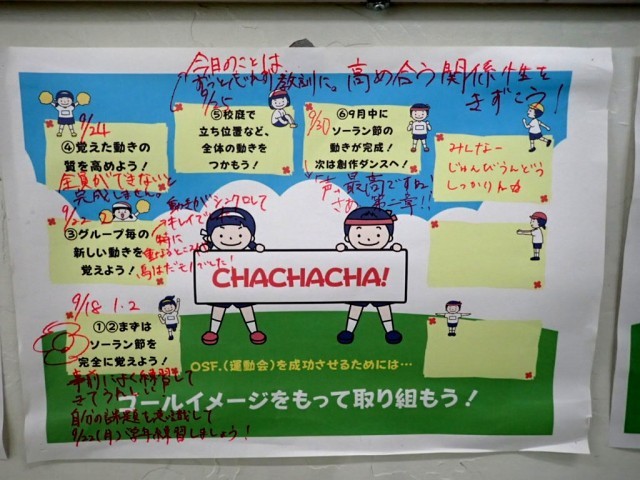 今日のことは、
ずっと忘れず教訓に。高め合う関係性を
きずこう！
9/24
④覚えた動きの
質を高めよう！
全員ができないと
完成しません。
9/25
⑤校庭で
立ち位置など、
全体の動きを
つかもう！
9/30
⑥9月中に
ソーラン節の
動きが完成！
次は創作ダンスへ！
声 最高ですね！
さあ 第二章!!
みんなー
じゅんびうんどう
しっかりんか
9/22 2
③グループ毎の
新しい動きを
覚えよう！
動きがシンクロして
キレイで
特に
CHACHACHA!
9/18 1.2
①②まずは
ソーラン節を
完全に覚えよう！
事前によく練習して
きてうれしい!!
自分の課題を意識して
9/22(月)学年練習しましょう！
OSF.(運動会)を成功させるためには…
ゴールイメージをもって取り組もう！